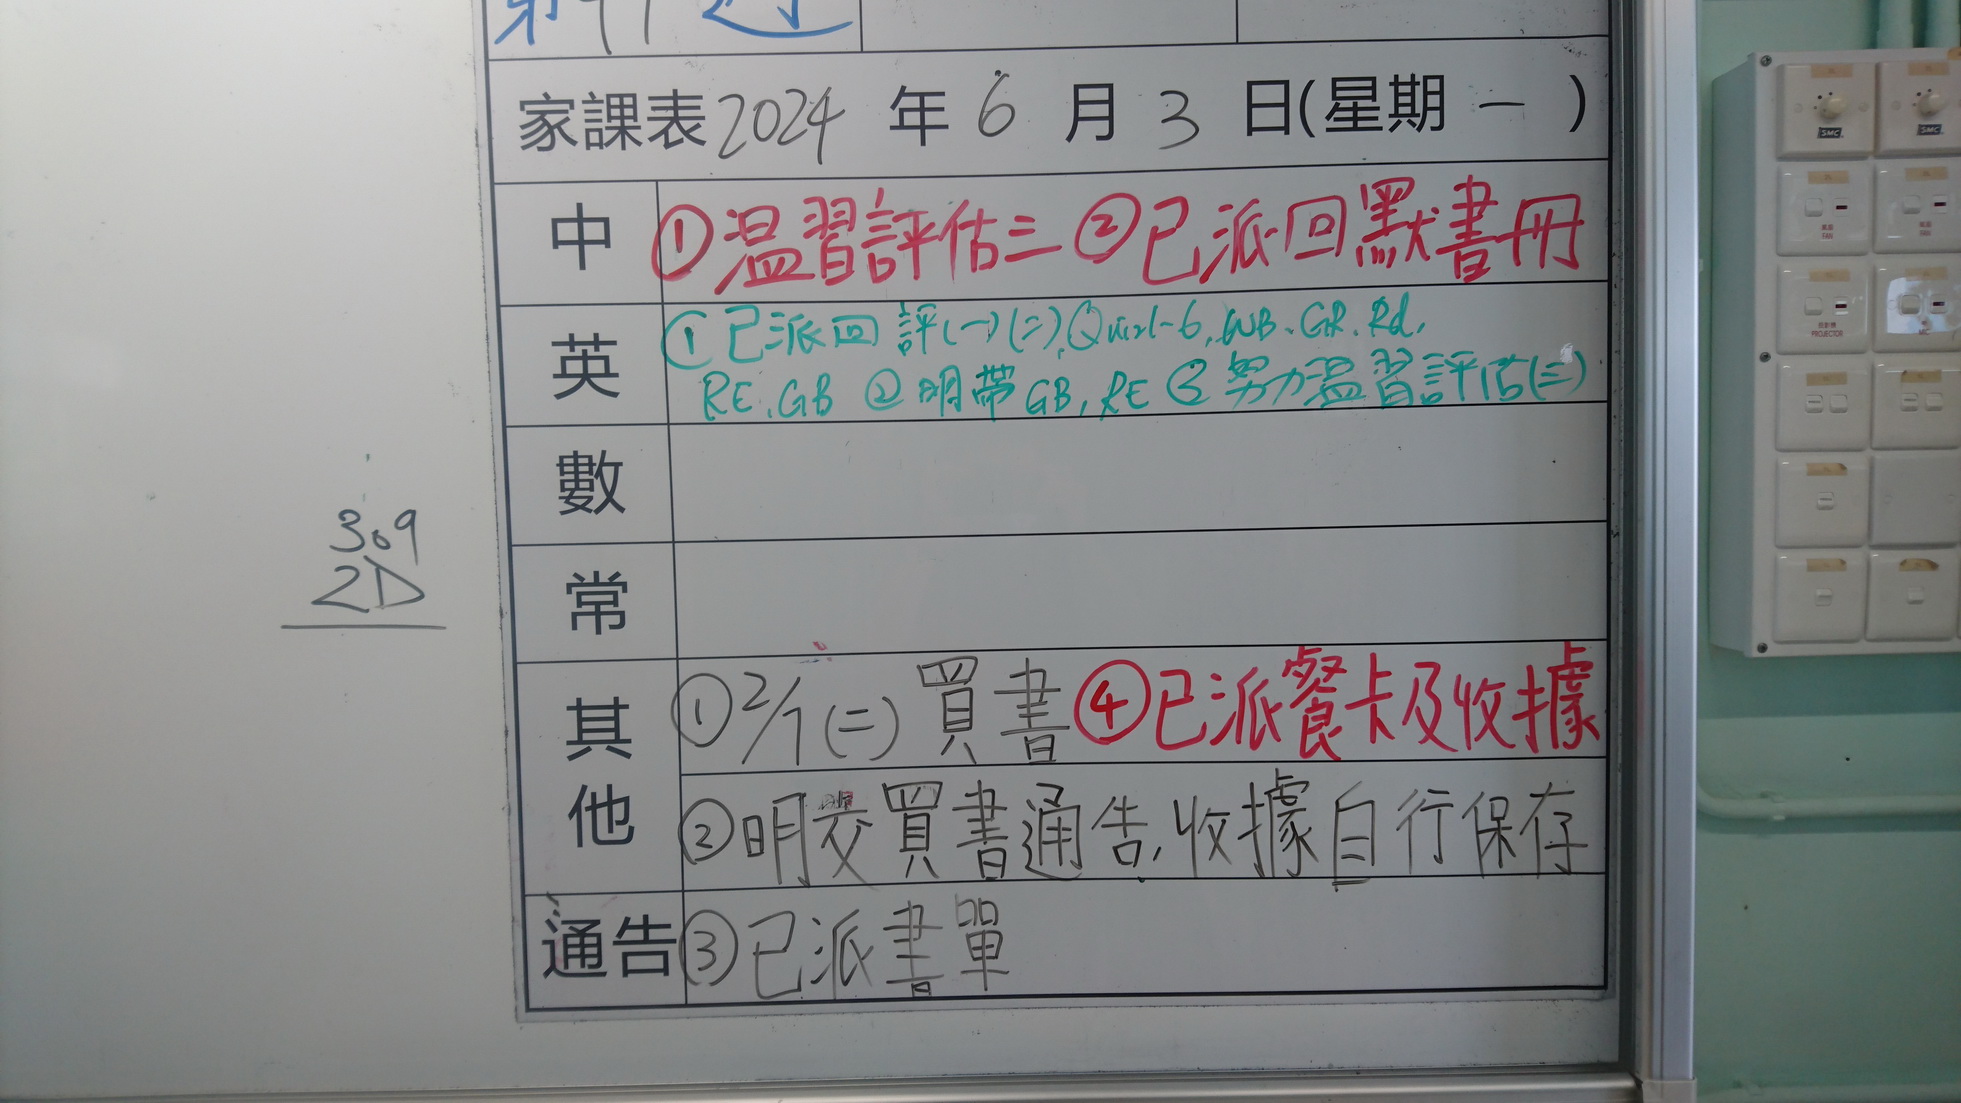 家課表 2024 年 6 月 3 日(星期 一 )
中 ①温習評估三 ②已派回默書冊
英 ①已派回評(一)(二),Quiz1-6,WB、GR、Rd,
RE、GB ②明帶GB,RE ③努力温習評估(三)
數
常
309
2D
其他 ①2/7(二)買書 ④已派餐卡及收據
②明交買書通告,收據自行保存
通告 ③已派書單
SMC SMC
風扇 FAN
風扇 FAN
投影機 PROJECTOR